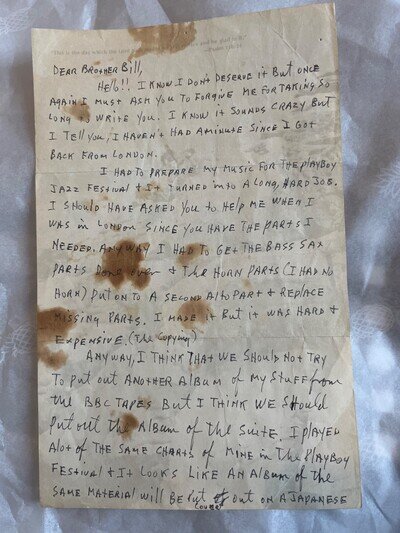 "This is the day which the Lord
and be glad in it."
Psalm 118:24
DEAR BROTHER BILL,
HELLO!! I KNOW I DON'T DESERVE IT BUT ONCE
AGAIN I MUST ASK YOU TO FORGIVE ME FOR TAKING SO
LONG TO WRITE YOU. I KNOW IT SOUNDS CRAZY BUT
I TELL YOU, I HAVEN'T HAD A MINUTE SINCE I GOT
BACK FROM LONDON.
I HAD TO PREPARE MY MUSIC FOR THE PLAYBOY
JAZZ FESTIVAL & IT TURNED INTO A LONG, HARD JOB.
I SHOULD HAVE ASKED YOU TO HELP ME WHEN I
WAS IN LONDON SINCE YOU HAVE THE PARTS I
NEEDED. ANYWAY I HAD TO GET THE BASS SAX
PARTS DONE OVER & THE HORN PARTS (I HAD NO
HORN) PUT ON TO A SECOND ALTO PART & REPLACE
MISSING PARTS. I MADE IT BUT IT WAS HARD &
EXPENSIVE. (The Copying)
ANYWAY, I THINK THAT WE SHOULD NOT TRY
TO PUT OUT ANOTHER ALBUM OF MY STUFF FROM
THE BBC TAPES BUT I THINK WE SHOULD
PUT OUT THE ALBUM OF THE SUITE. I PLAYED
ALOT OF THE SAME CHARTS OF MINE IN THE PLAYBOY
FESTIVAL & IT LOOKS LIKE AN ALBUM OF THE
SAME MATERIAL WILL BE PUT OUT ON A JAPANESE